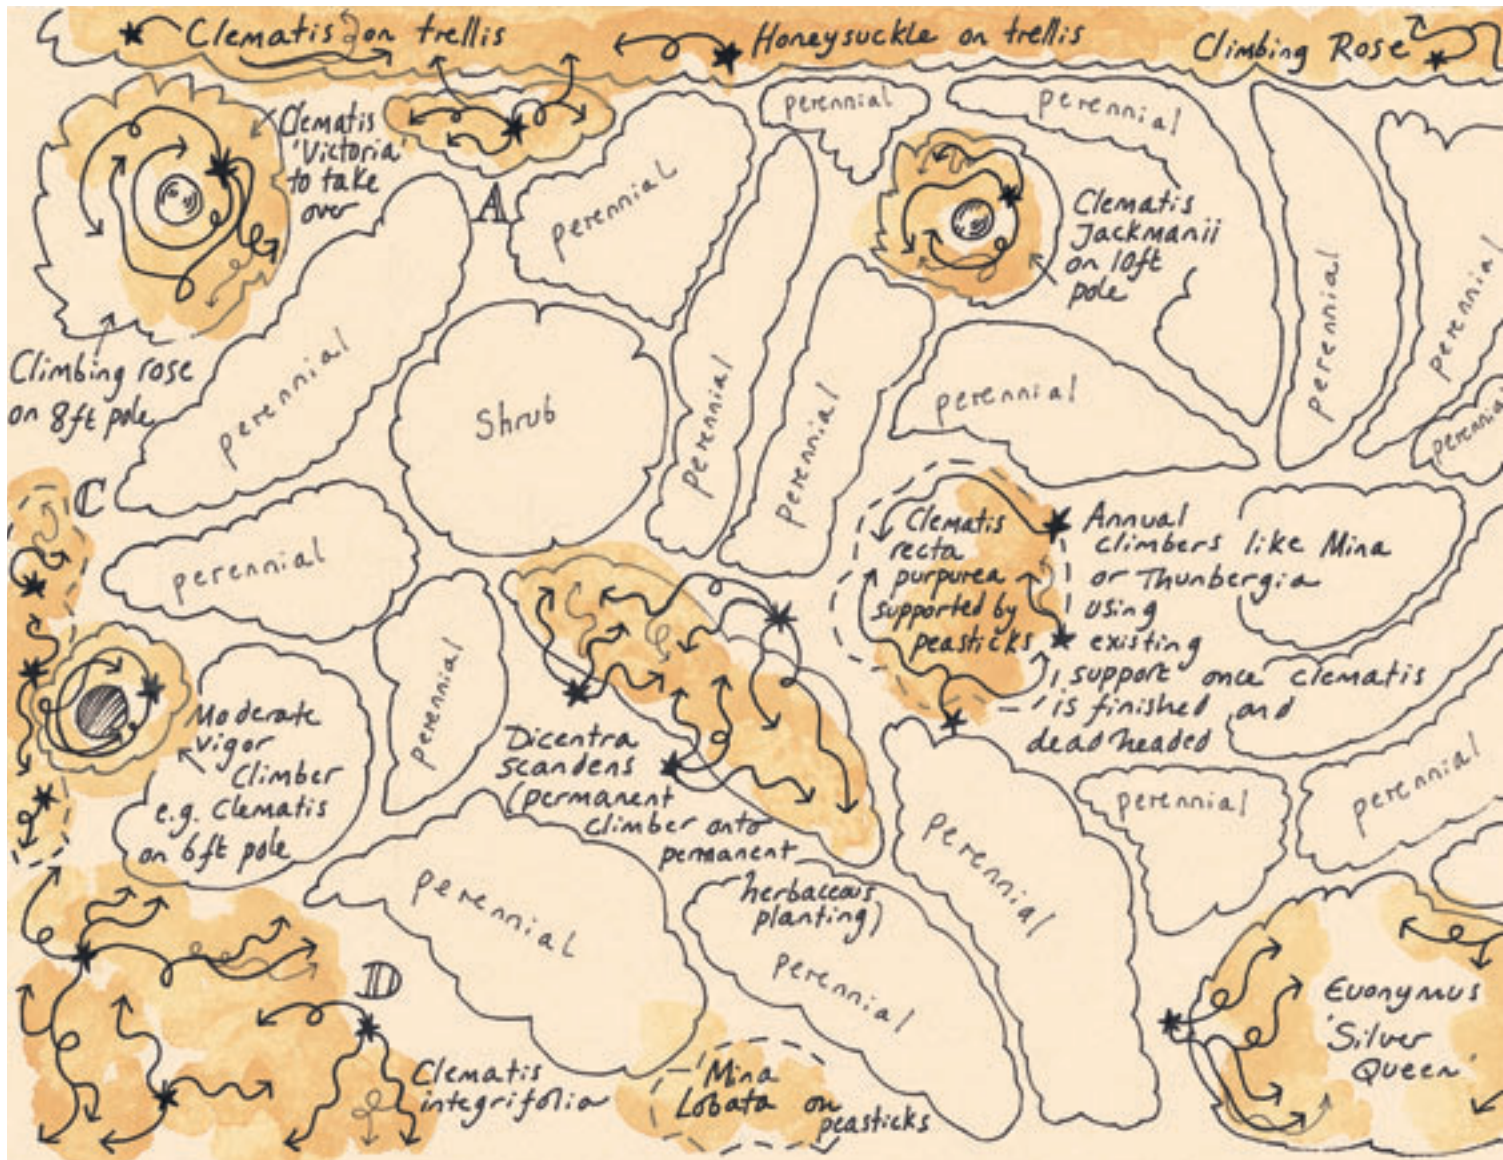 Clematis on trellis
Honeysuckle on trellis
Climbing Rose
Clematis
'Victoria'
to take
over
A
perennial
perennial
perennial
Clematis
Jackmanii
on 10ft
pole
perennial
perennial
perennial
Climbing rose
on 8ft pole
perennial
Shrub
perennial
perennial
perennial
C
perennial
Clematis
recta
purpurea
supported by
peasticks
Annual
climbers like Mina
or Thunbergia
using
existing
support once clematis
is finished and
deadheaded
perennial
Moderate
vigor
Climber
e.g. Clematis
on 6ft pole
Dicentra
scandens
(permanent
climber onto
permanent
herbaceous
planting)
perennial
perennial
perennial
perennial
perennial
D
Clematis
integrifolia
Mina
Lobata on
peasticks
Euonymus
'Silver
Queen'